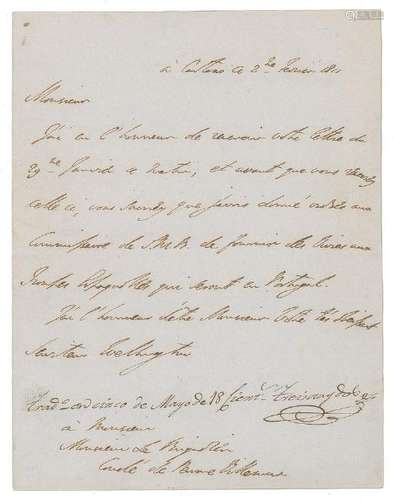 à Cartaxo ce 2 Fevrier 1811
Monsieur
J'ai eu l'honneur de recevoir votre lettre du
29 Janvier ce matin, et avant que vous
cette ci, vous saurez que j'avois donné ordre au
Commissaire de S.M.B. de fournir des vivres aux
troupes Espagnolles qui seront en Portugal.
J'ai l'honneur d'être Monsieur Votre très
Serviteur Wellington
Trad.º en cinco de Mayo de 18
à Monsieur
Monsieur Le Brigadier
Comte de